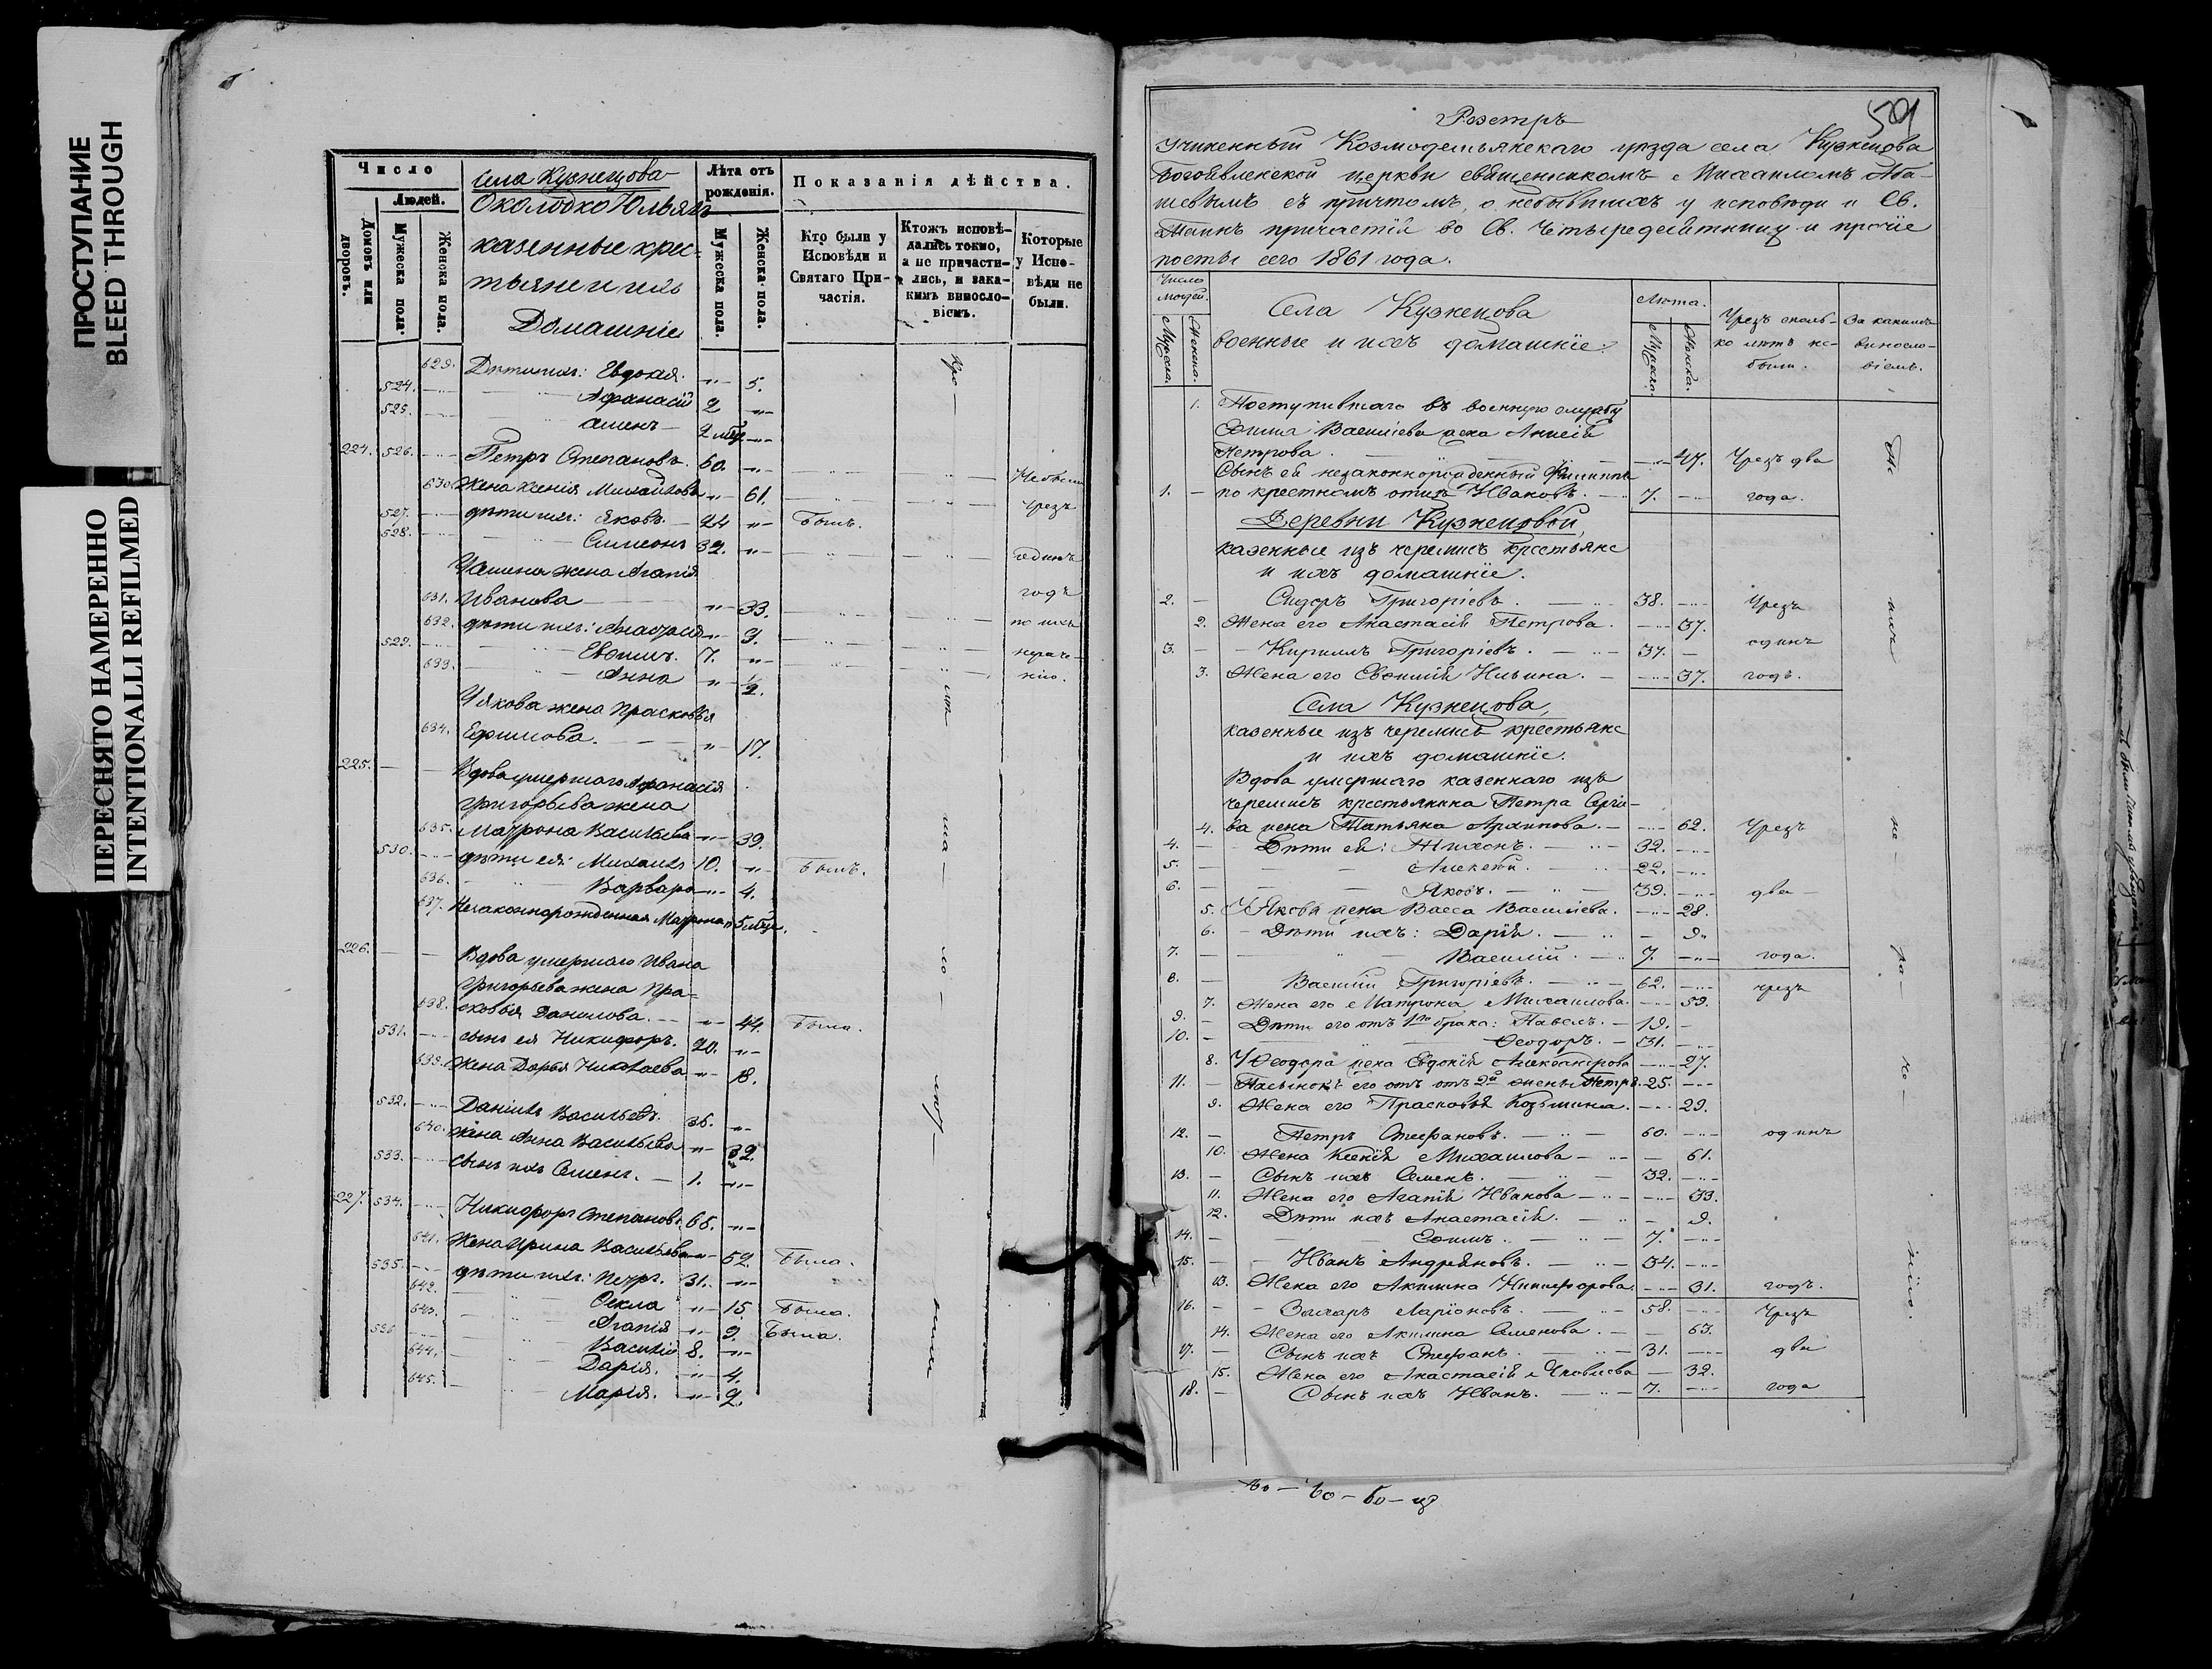 ПРОСТУПАНИЕ
BLEED THROUGH
ПЕРЕСНЯТО НАМЕРЕННО
INTENTIONALLI REFILMED
Число
Людей.
Домовъ или дворовъ.
Мужеска пола.
Женска пола.
села Кузнецова
Околодко Юльялъ
казенные крес-
тьяне и ихъ
Домашніе
Лѣта отъ рожденія.
Мужеска пола.
Женска пола.
Показанія дѣйства.
Кто были у Исповѣди и Святаго Причастія.
Ктожъ исповѣ-
дались токмо,
а не причасти-
лись, и зака-
кимъ виносло-
віемъ.
Которые
у Испо-
вѣди не
были.
629. Дѣти ихъ: Евдокія. 5.
524. Афанасій 2
525. Семенъ 2 мѣс.
224. 526. Петръ Степановъ. 60.
630 Жена Ксенія Михайлова 61. Небыли
527. дѣти ихъ: Яковъ. 24 Былъ. чрезъ
528. Симеонъ 32. одинъ
У Семена жена Агапія
631. Иванова 33. годъ
632. дѣти ихъ: Анастасія 9. по ихъ
529. Евфимъ. 7. нераче-
633. Анна 1/2. нію.
У Якова жена Прасковья
634. Ефимова. 17.
225. Вдова умершаго Афанасія
Григорьева жена
635. Матрона Васильева 39.
530. дѣти ея: Михаилъ 10. Былъ.
636. Варвара 4.
637. Незаконнорожденная Матрона 5 мѣс.
226. Вдова умершаго Ивана
Григорьева жена Пра-
638. сковья Данилова. 44. Была.
531. сынъ ея Никифоръ. 20.
639. Жена Дарья Николаева 18.
532. Даніилъ Васильевъ. 36.
640. жена Анна Васильева 32.
533. Сынъ ихъ Семенъ. 1.
227. 534. Никифоръ Степановъ 65.
641. Жена Ирина Васильева 52. Была.
535. дѣти ихъ: Петръ. 31.
642. Фекла 15. Была.
643. Агапія 9. Была.
536 Василій 8.
644. Дарія. 4.
645. Марія. 2.
501
Реэстръ
учиненный Козмодемьянскаго уѣзда села Кузнецова
Богоявленской церкви священникомъ Михаиломъ Аба-
шевымъ съ причтомъ, о небывшихъ у исповѣди и Св.
Таинъ причастія во Св. Четыредесятницу и прочіе
посты сего 1861 года.
Число людей.
Мужеска.
Женска.
Села Кузнецова
военные и ихъ домашніе.
Лѣта.
Мужеска.
Женска.
Чрезъ сколь-
ко лѣтъ не
были.
За какимъ
виносло-
віемъ.
1. Поступившаго въ военную службу
Фомы Васильева жена Анисія
Петрова. 47. Чрезъ два
Сынъ ея незаконнорожденный Филиппъ
1. по крестномъ отцѣ Ивановъ. 7. года.
Деревни Кузнецовой,
казенные изъ черемисъ крестьяне
и ихъ домашніе.
2. Сидоръ Григоріевъ. 38. Чрезъ
2. Жена его Анастасія Петрова. 37.
3. Кириллъ Григоріевъ. 37. одинъ
3. Жена его Евфимія Ильина. 37. годъ.
Села Кузнецова,
казенные изъ черемисъ крестьяне
и ихъ домашніе.
Вдова умершаго казеннаго изъ
черемисъ крестьянина Петра Сергіе-
4. ва жена Татьяна Архипова. 62. Чрезъ
4. Дѣти ея: Тихонъ. 32.
5. Алексѣй. 22.
6. Яковъ. 39. два
5. У Якова жена Васса Васильева. 28.
6. Дѣти ихъ: Дарія. 9.
7. Василій. 7. года.
8. Василій Григоріевъ. 62. чрезъ
7. Жена его Матрона Михаилова. 59.
9. Дѣти его отъ 1го брака: Павелъ. 19.
10. Феодоръ. 31.
8. У Феодора жена Евдокія Александрова 27.
11. Пасынокъ его отъ отъ 2й жены Петръ. 25.
9. Жена его Прасковья Козьмина. 29.
12. Петръ Стефановъ. 60. одинъ
10. Жена Ксенія Михаилова 61.
13. Сынъ ихъ Семенъ. 32.
11. Жена его Агапія Иванова 33.
12. Дѣти ихъ Анастасія. 9.
14. Ефимъ. 7.
15. Иванъ Андреяновъ. 34.
13. Жена его Акилина Никифорова. 31. годъ.
16. Захаръ Ларіоновъ. 58. Чрезъ
14. Жена его Акилина Семенова. 63.
17. Сынъ ихъ Стефанъ. 31. два
15. Жена его Анастасія Яковлева 32.
18. Сынъ ихъ Иванъ. 7. года
По
ихъ
не
ра
че
нію.